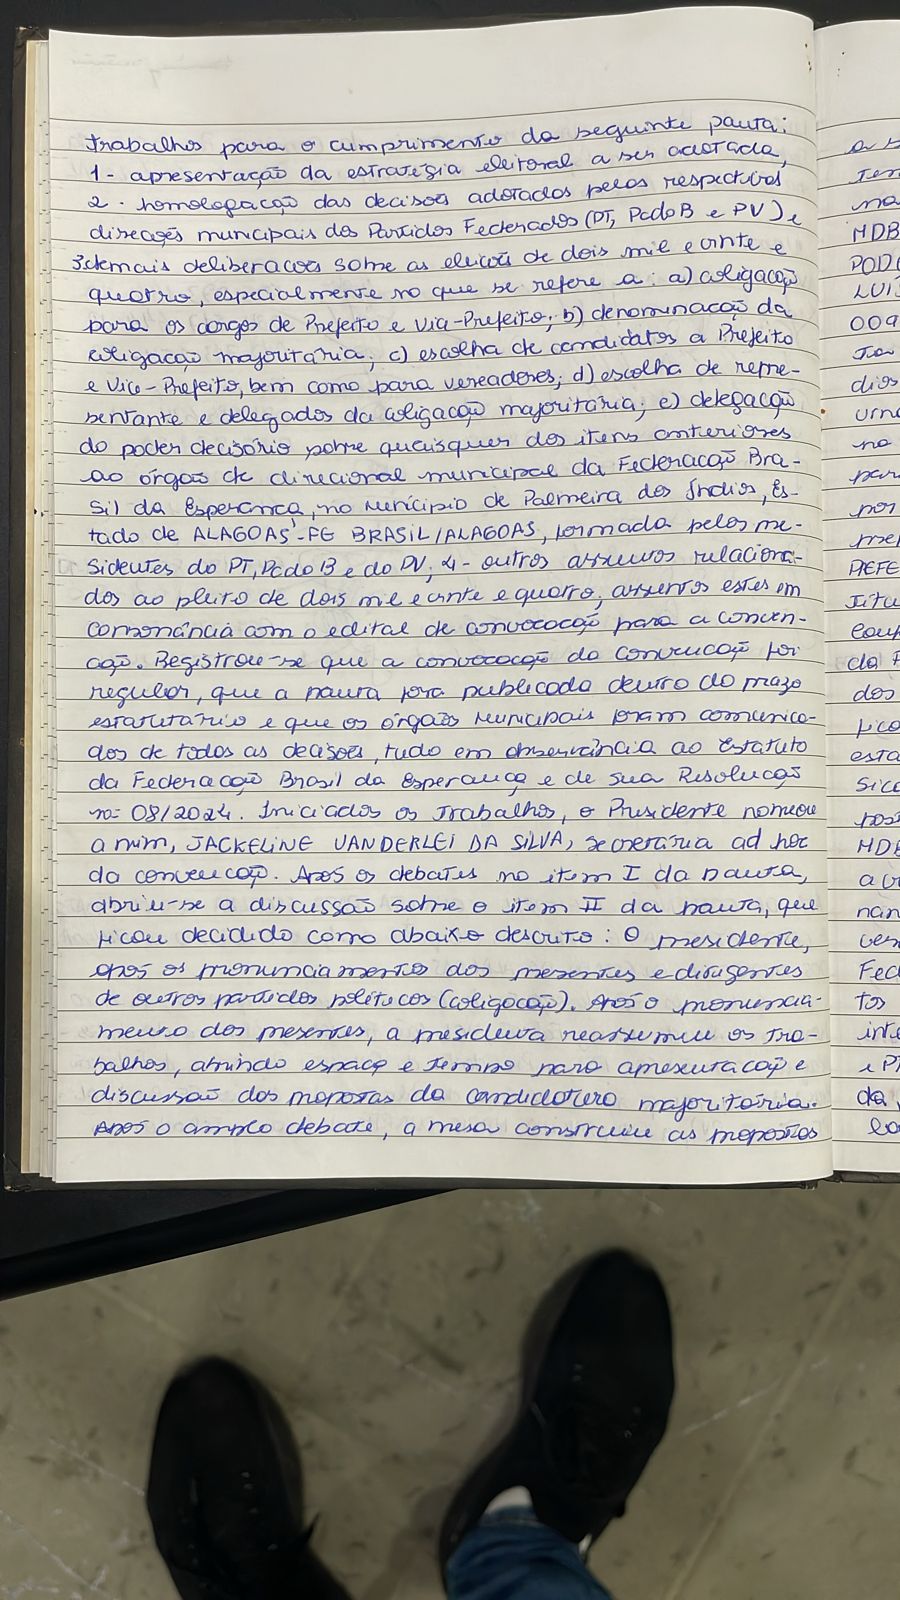 trabalhos para o cumprimento da seguinte pauta:
1- apresentação da estratégia eleitoral a ser adotada,
2 - homologação das decisões adotadas pelos respectivos
direções municipais dos Partidos Federados (PT, PcdoB e PV) e
3demais deliberações sobre as eleições de dois mil e vinte e
quatro, especialmente no que se refere a: a) coligação
para os cargos de Prefeito e Vice-Prefeito; b) denominação da
coligação majoritária; c) escolha de candidatos a Prefeito
e Vice-Prefeito, bem como para vereadores; d) escolha de repre-
sentante e delegados da coligação majoritária; e) delegação
do poder decisório sobre quaisquer dos itens anteriores
ao órgão de direcional municipal da Federação Bra-
sil da Esperança, no município de Palmeira dos Índios, Es-
tado de ALAGOAS-FE BRASIL/ALAGOAS, formada pelos pre-
sidentes do PT, PcdoB e do PV; 4- outros assuntos relaciona-
dos ao pleito de dois mil e vinte e quatro, assuntos estes em
consonância com o edital de convocação para a conven-
ção. Registrou-se que a convocação da convenção foi
regular, que a pauta fora publicada dentro do prazo
estatutário e que os órgãos municipais foram comunica-
dos de todas as decisões, tudo em observância ao Estatuto
da Federação Brasil da Esperança e de sua Resolução
nº 08/2024. Iniciados os trabalhos, o Presidente nomeou
a mim, JACKELINE VANDERLEI DA SILVA, secretária ad hoc
da convenção. Após os debates no item I da pauta,
abriu-se a discussão sobre o item II da pauta, que
ficou decidido como abaixo descrito: O presidente,
após os pronunciamentos dos presentes e dirigentes
de outros partidos políticos (coligação). Após o pronuncia-
mento dos presentes, a presidenta reassumiu os tra-
balhos, abrindo espaço e tempo para apresentação e
discussão das propostas da majoritária.
Após o amplo debate, a mesa construiu as propostas
MDB
LUI
009
dios
urna
no
por
PREFE
da
dos
esta
MDB
Fed
tos
e P
da